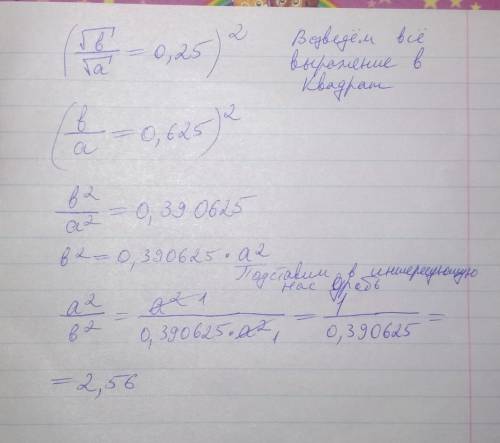 (√в/√а = 0,25)² Возведём всё
выражение в
Квадрат
(в/а = 0,625)²
в²/а² = 0,390625
в² = 0,390625 · а²
Подставим в интересующую
нас дробь
а²/в² = а² 1/0,390625·а² 1 = 1/0,390625 =
= 2,56